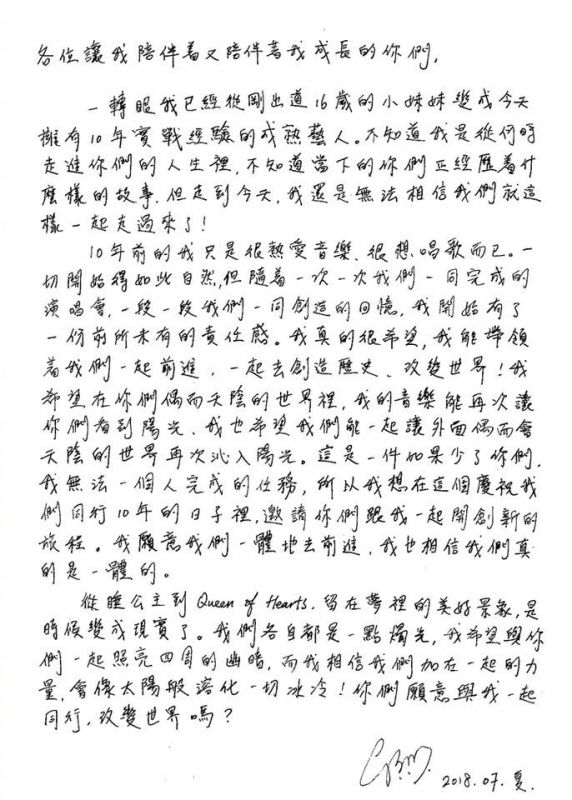 各位讓我陪伴着又陪伴著我成長的你們,
一轉眼我已經從剛出道16歲的小妹妹變成今天
擁有10年實戰經驗的成熟藝人。不知道我是從何時
走進你們的人生裡,不知道當下的你們正經歷着什
麼樣的故事,但走到今天,我還是無法相信我們就這
樣一起走過來了!
10年前的我只是很熱愛音樂、很想唱歌而已。一
切開始得如此自然,但隨着一次一次我們一同完成的
演唱會,一段一段我們一同創造的回憶,我開始有了
一份前所未有的責任感。我真的很希望,我能帶領
着我們一起前進,一起去創造歷史、改變世界!我
希望在你們偶而天陰的世界裡,我的音樂能再次讓
你們看到陽光、我也希望我們能一起讓外面偶而會
天陰的世界再次沁入陽光。這是一件如果少了你們,
我無法一個人完成的任務,所以我想在這個慶祝我
們同行10年的日子裡,邀請你們跟我一起開創新的
旅程。我願意我們一體地去前進,我也相信我們真
的是一體的。
從睡公主到Queen of Hearts.留在夢裡的美好景象,是
時候變成現實了。我們各自都是一點燭光,我希望與你
們一起照亮四周的幽暗,而我相信我們加在一起的力
量,會像太陽般溶化一切冰冷!你們願意與我一起
同行,改變世界嗎?
2018.07.夏.